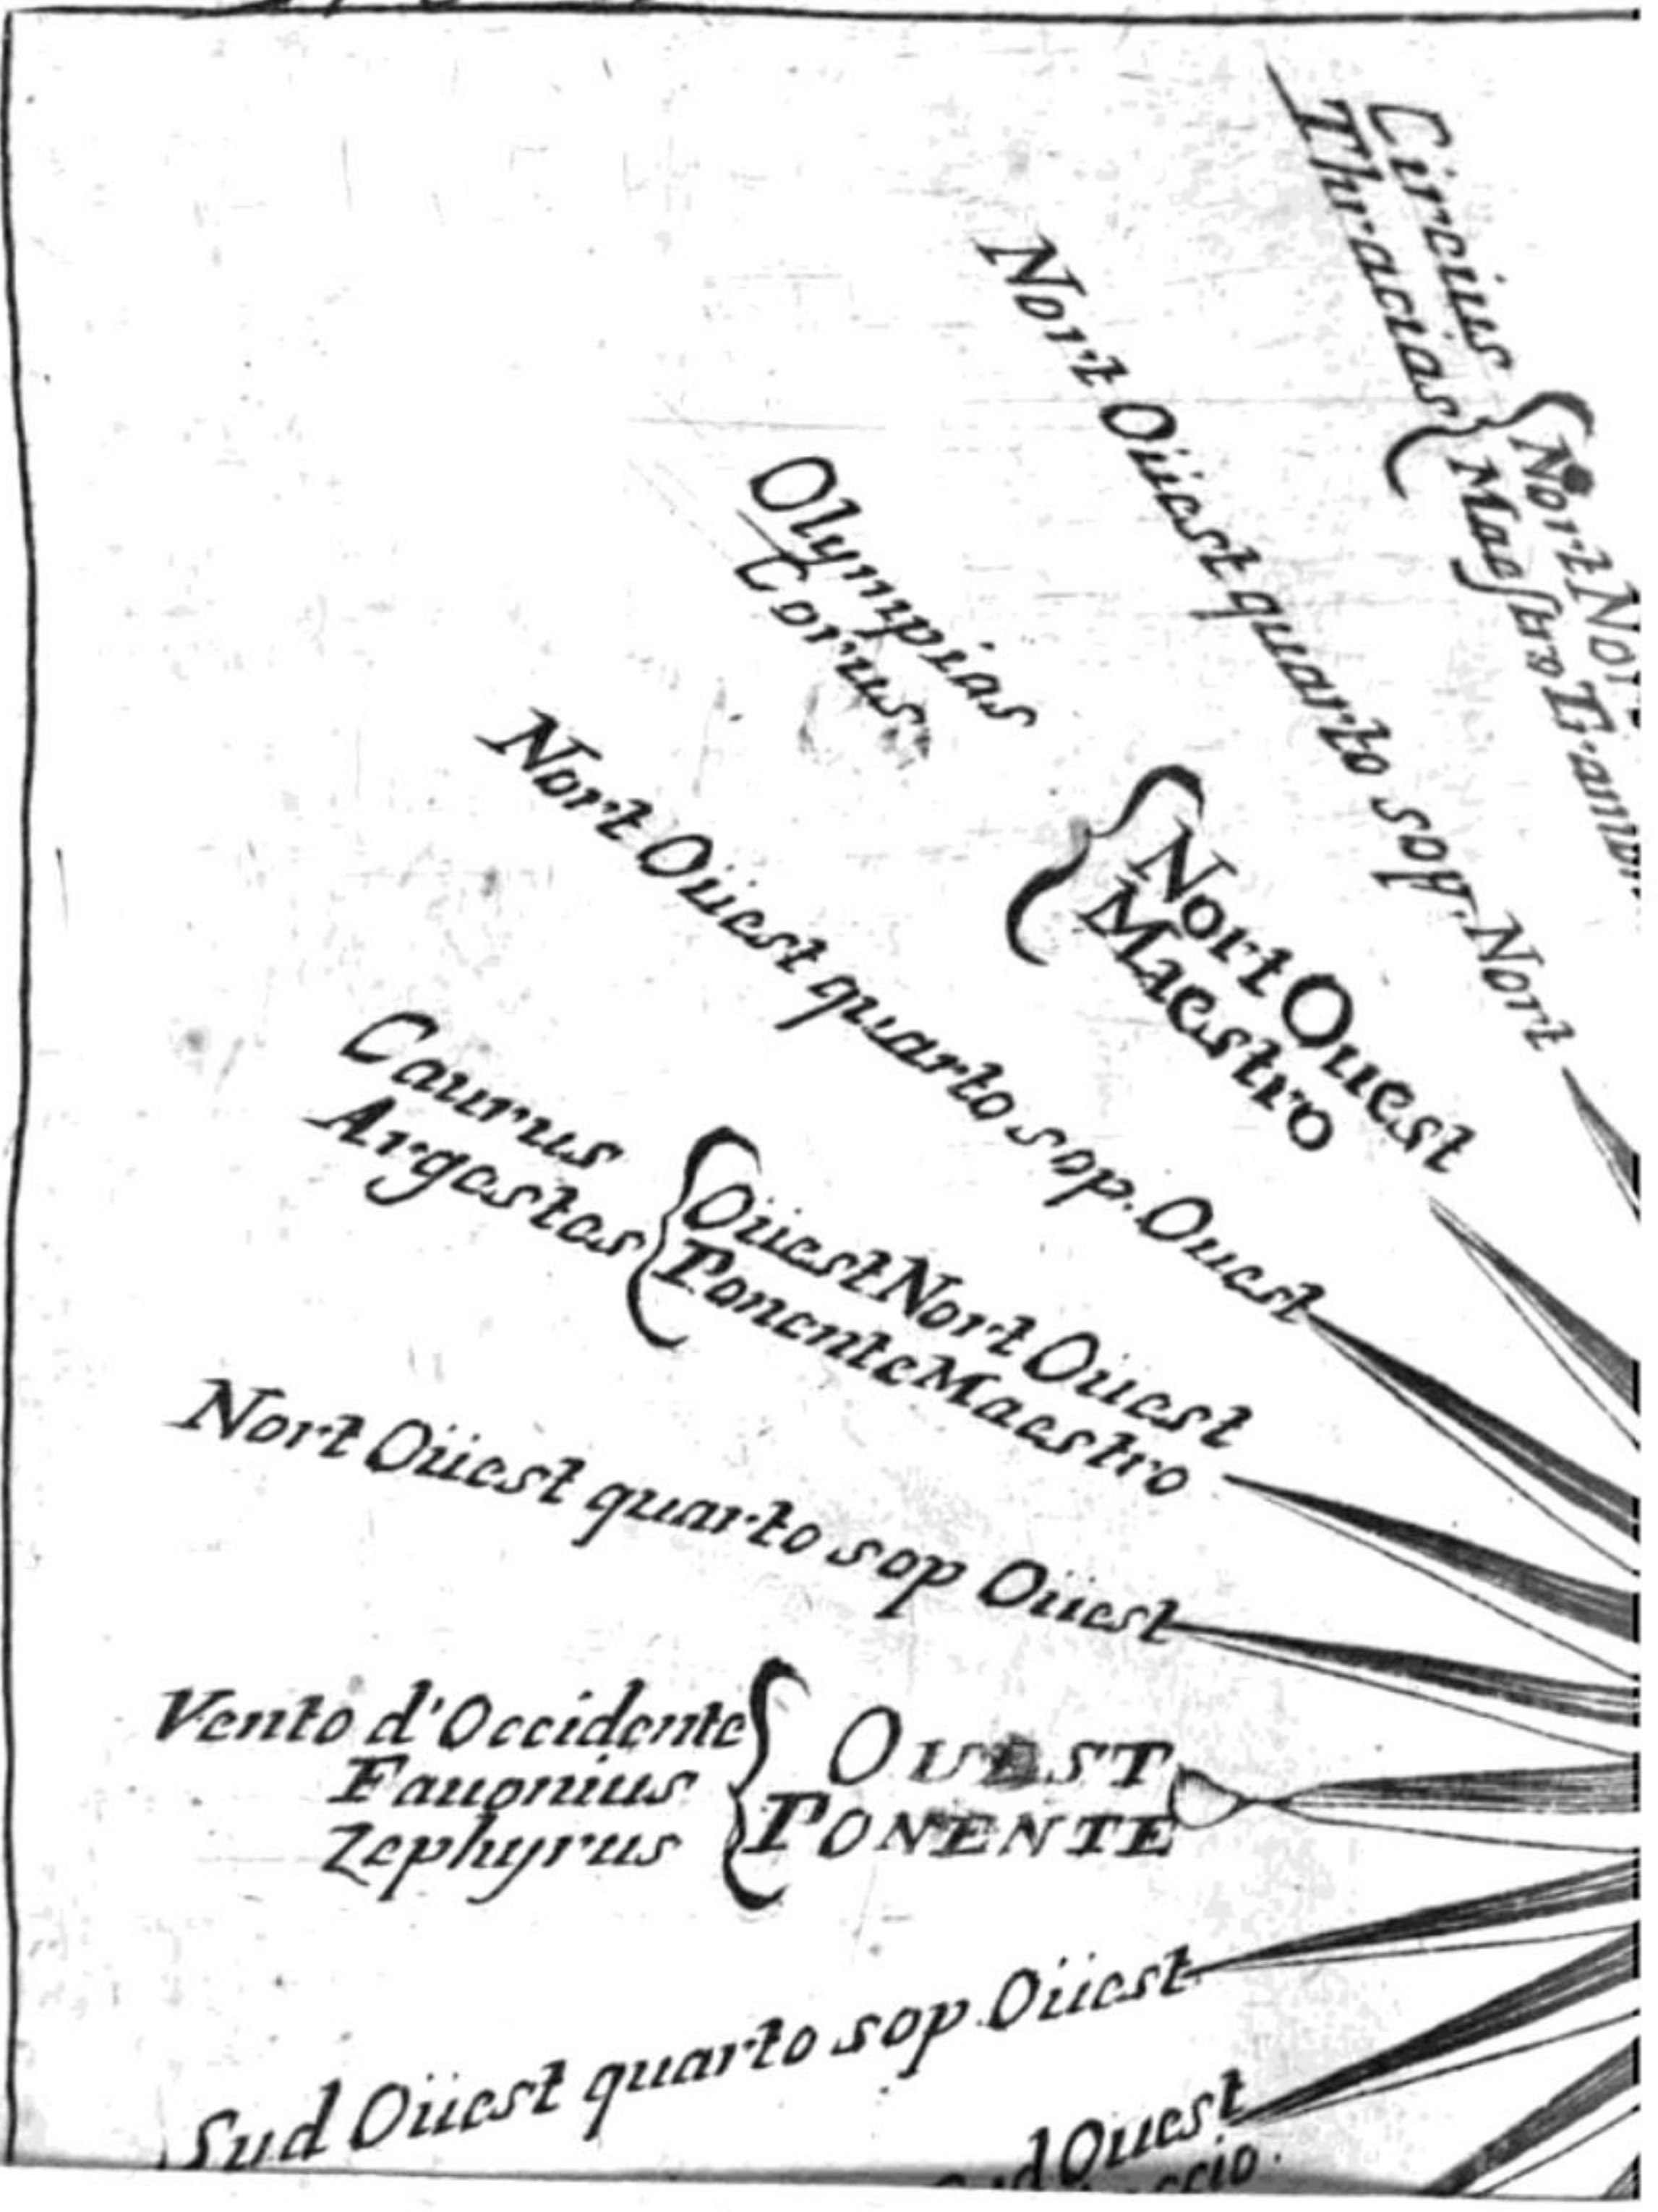 Circius
Thracias
Nort Nor
Maestro Tramon
Nort Oüest quarto sop. Nort
Olympias
Corus
Nort Ouest
Maestro
Nort Oüest quarto sop. Ouest
Caurus
Argestes
Oüest Nort Oüest
Ponente Maestro
Nort Oüest quarto sop Oüest
Vento d'Occidente
Fauonius
Zephyrus
OUEST
PONENTE
Sud Oüest quarto sop. Oüest
Ouest